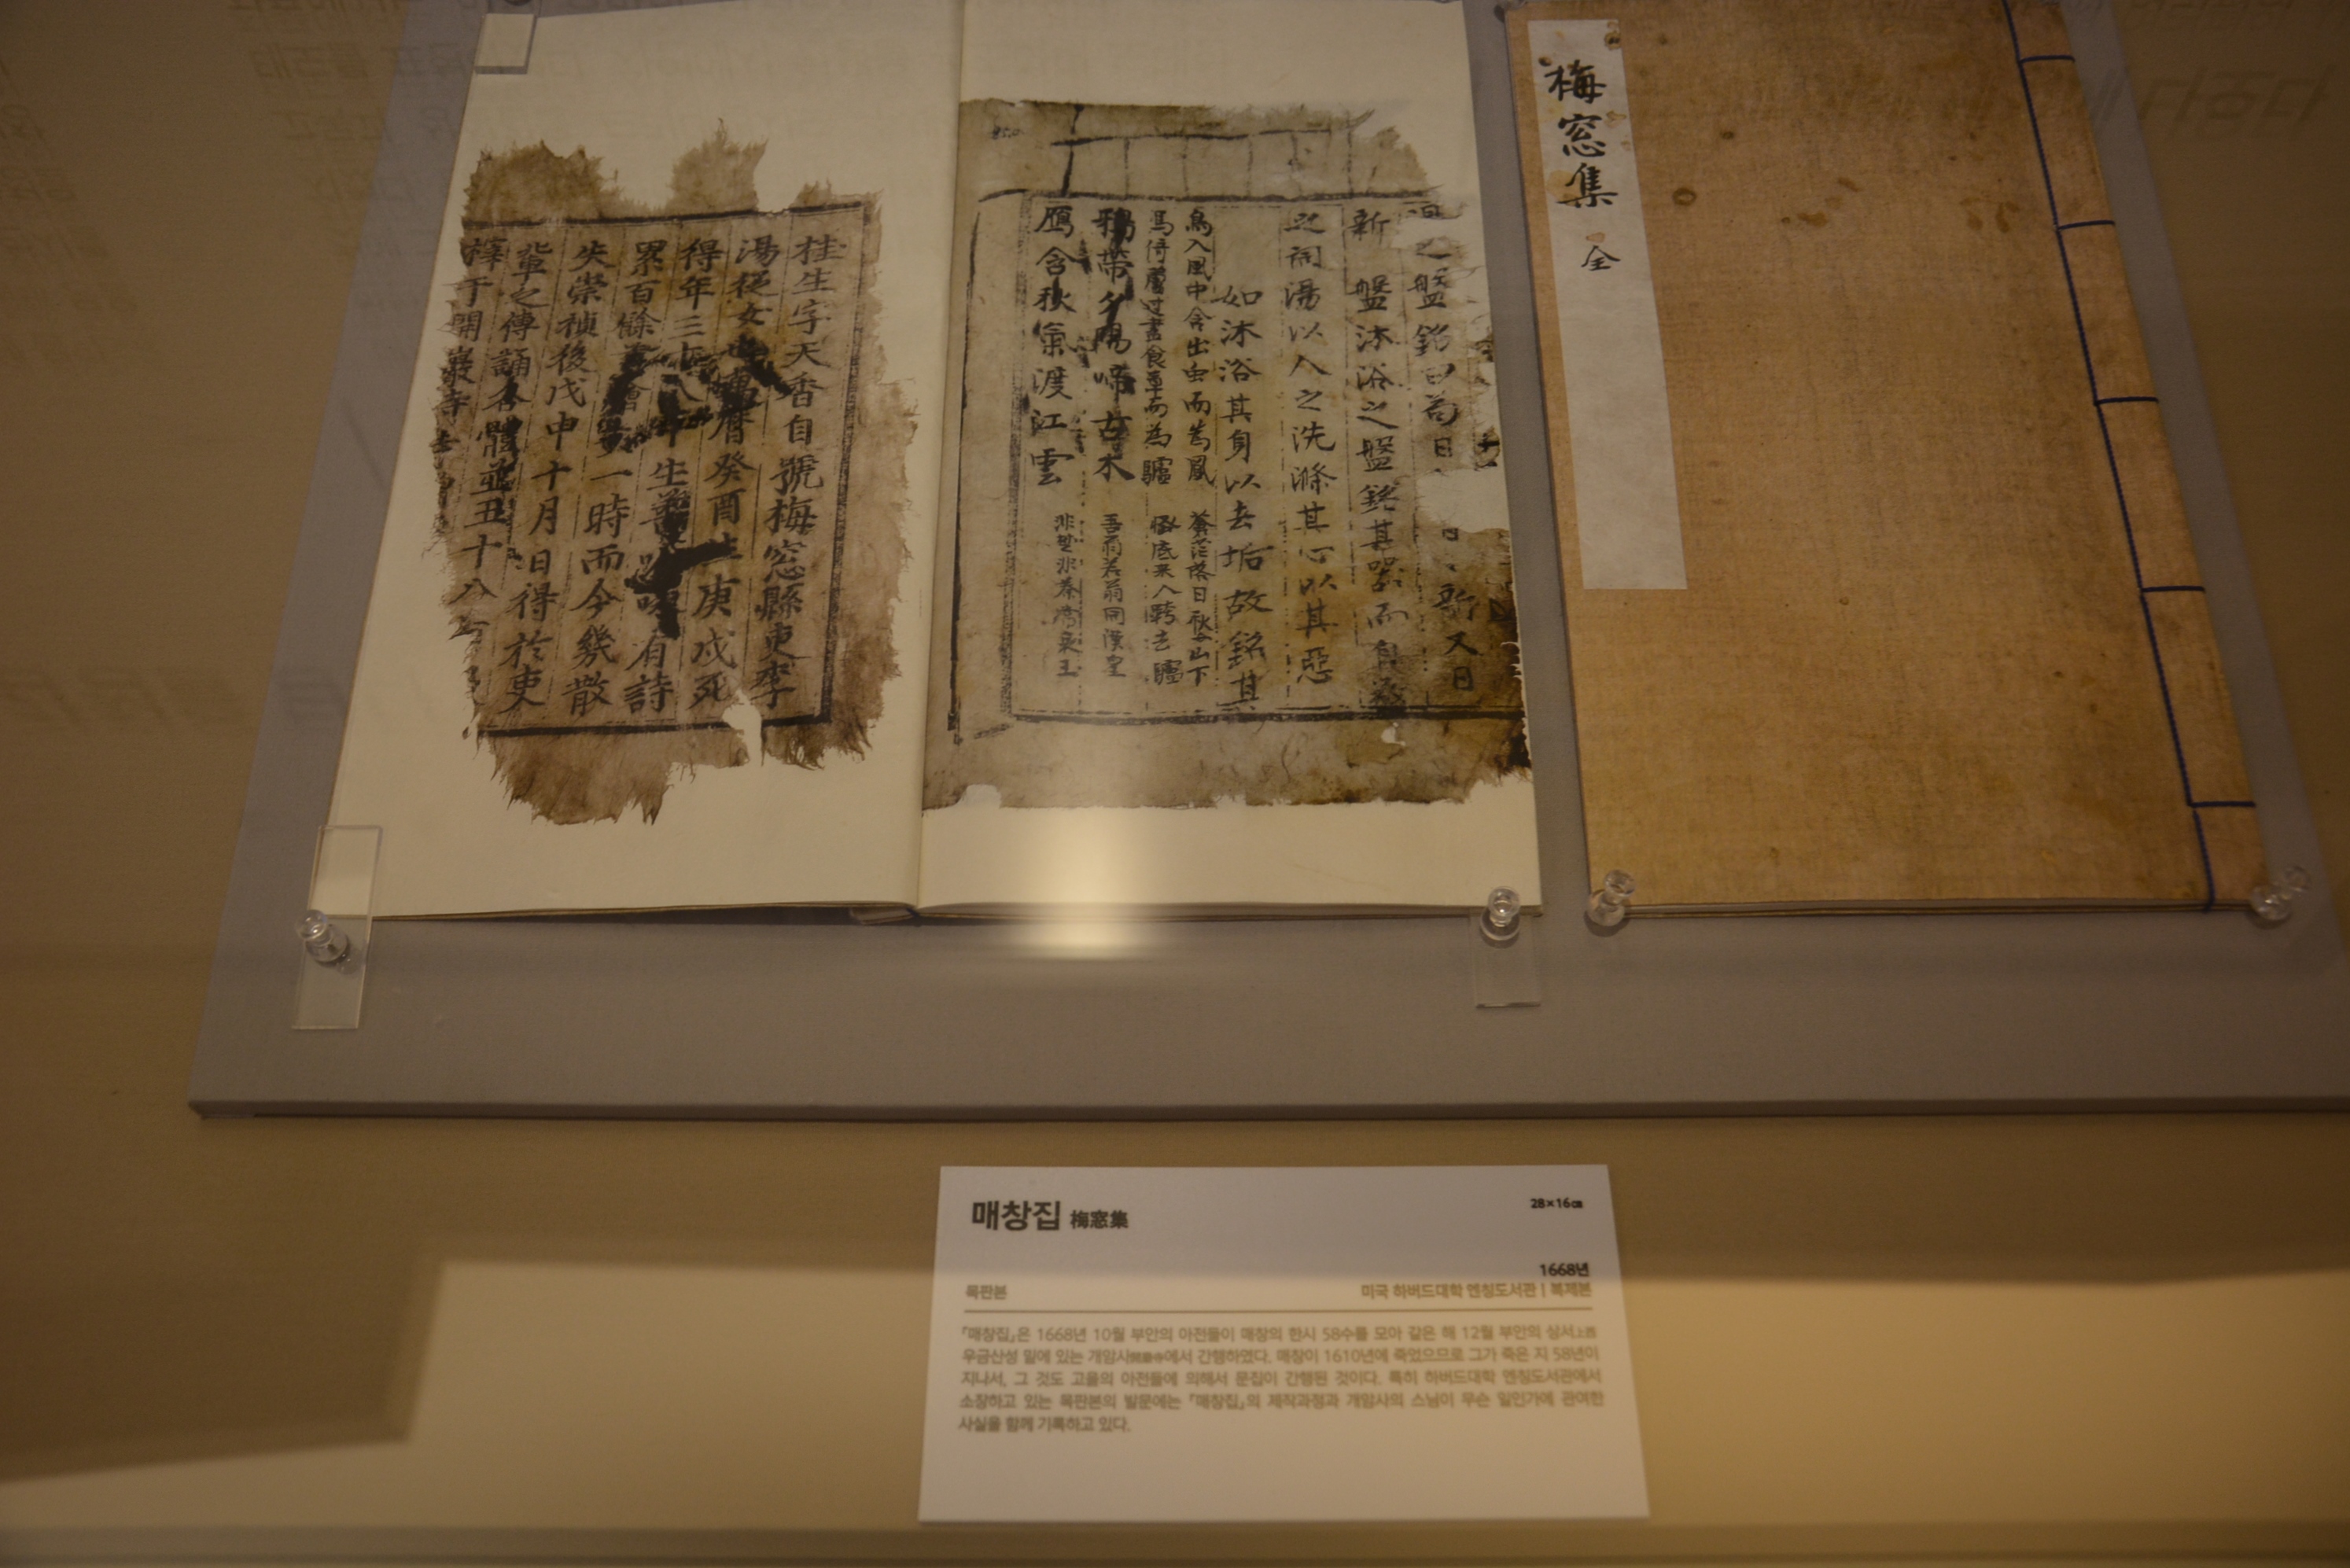 梅窓集 全
桂生字天香自號梅窓縣吏李
湯從女也萬曆癸酉生庚戌死
得年三十八平生善吟咏有詩
累百餘首膾炙一時而今幾散
失崇禎後戊申十月日得於吏
輩之傳誦各體並五十八首
梓于開巖寺
之盤銘曰苟日新又日
新 盤沐浴之盤銘其器而自
之詞湯以人之洗滌其心以
如沐浴其身以去垢故銘其
鳥入風中含出虫而為鳳
馬倚蘆过盡食草而為驢
鴉帶夕陽啼古木
鴈含秋氣渡江雲
매창집 梅窓集
28×16㎝
1668년
목판본
미국 하버드대학 옌칭도서관 | 복제본
『매창집』은 1668년 10월 부안의 아전들이 매창의 한시 58수를 모아 같은 해 12월 부안의 상서上西
우금산성 밑에 있는 개암사開巖寺에서 간행하였다. 매창이 1610년에 죽었으므로 그가 죽은 지 58년이
지나서, 그 것도 고을의 아전들에 의해서 문집이 간행된 것이다. 특히 하버드대학 옌칭도서관에서
소장하고 있는 목판본의 발문에는 『매창집』의 제작과정과 개암사의 스님이 무슨 일인가에 관여한
사실을 함께 기록하고 있다.